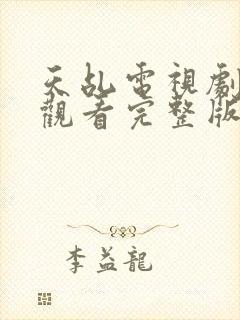 天乩電視劇
觀看完整版
李益龍